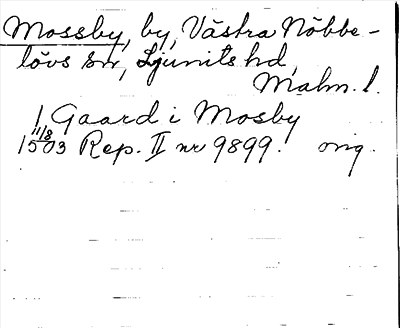 Mossby, by, Västra Nöbbe-
lövs sn, Ljunits hd,
Malm. l.
1 Gaard i Mosby
11/8
1503 Rep. II nr 9899. orig.